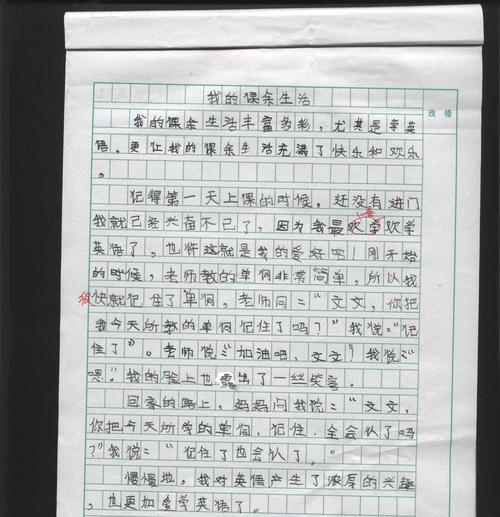 我的课余生活
改错
我的课余生活丰富多彩,尤其是学英
语,更让我的课余生活充满了快乐和欢乐
。
记得第一天上课的时候,还没有进门
我就已经兴奋不已了,因为我最欢学欢学
英语了,也许这就是我的爱好吧!刚开始
的时候,老师教的单词非常简单,所以我
很快就记住了单词,老师问:“文文,你把
我今天所教的单词记住了吗?”我说:“记
住了”。老师说:“加油吧,文文!我说:“
嗯”我的脸上也露出了一丝笑容。
回家的路上,妈妈问我说:“文文,
你把今天所学的单词,记住.全会认了吗
?”我说:“记住了也会认了。”
慢慢地,我对英语产生了浓厚的兴趣
,也更加爱学英语了。